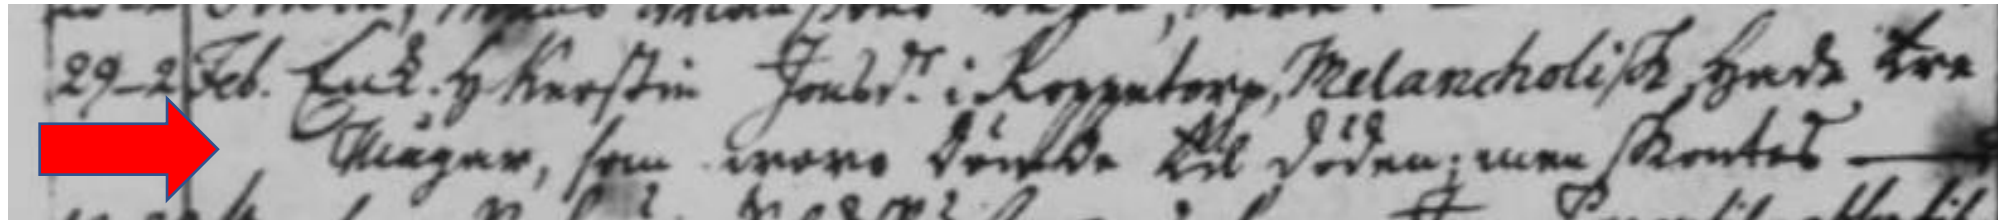 29-2 Feb. Enk. H Kerstin Jonsdr. i Roppetorp, Melancholisk, Hade tre
Mågar, som wore dömde til döden; men skontes